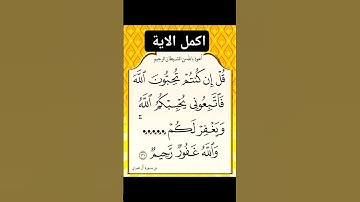 اكمل الاية
أعوذ بالله من الشيطان الرجيم
قُلْ إِن كُنتُمْ تُحِبُّونَ ٱللَّهَ
فَٱتَّبِعُونِى يُحْبِبْكُمُ ٱللَّهُ
وَيَغْفِرْ لَكُمْ .....
وَٱللَّهُ غَفُورٌ رَّحِيمٌ ٣١
من سورة آل عمران